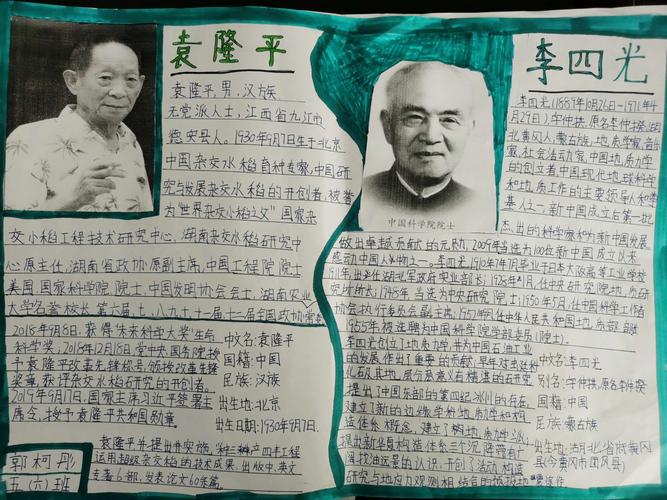 袁隆平
袁隆平,男,汉族
无党派人士,江西省九江市
德安县人。1930年9月7日生于北京
中国杂交水稻育种专家,中国研
究与发展杂交水稻的开创者,被誉
为"世界杂交水稻之父"国家杂
交水稻工程技术研究中心、湖南杂交水稻研究中
心原主任,湖南省政协原副主席,中国工程院院士
美国国家科学院院士,中国发明协会会士,湖南农业
大学名誉校长,第六届七、八九十十一届十二届全国政协常委
2018年9月8日,获得"未来科学大奖"生命
科学奖;2018年12月18日,党中央、国务院授
予袁隆平改革先锋称号,颁授改革先锋
奖章,获评杂交水稻研究的开创者。
2019年9月17日,国家主席习近平签署主
席令,授予袁隆平共和国勋章。
中文名:袁隆平
国籍:中国
民族:汉族
出生地:北京
出生日期:1930年9月7日
袁隆平并提出并实施"种三产四丰工程
运用超级杂交稻的技术成果,出版中、英文
专著6部,发表论文60余篇
郭柯彤
五(六)班
李四光
李四光(1889年10月26日-1971年4
月29日),字仲拱,原名李仲揆,湖
北黄冈人,蒙古族,地质学家、音乐
家、社会活动家,中国地质力学
的创立者、中国现代地球科学
和地质工作的主要领导人和奠
基人之一,新中国成立后第一批
杰出的科学家和为新中国发展
中国科学院院士
做出卓越贡献的元勋,2009年当选为100位新中国成立以来
感动中国人物之一。李四光,1910年7月毕业于日本大阪高等工业学校
1911年,出任湖北军政府实业部长;1928年1月,任中央研究院地质研
究所所长;1948年当选为中央研究院院士;1950年5月,任中国科学工作者
协会执行委员会副主席;1952年,任中华人民共和国地质部部长
1955年被选聘为中国科学院学部委员(院士)。
李四光创立了地质力学,并为中国石油工业
的发展作出了重要的贡献,早年对蜓科
化石及其地层分层意义有精湛的研究
提出了中国东部的第四纪冰川的存在
建立了新的边缘学科地质力学和构
造体系概念,建立了构造地质力学派;
提出新华夏构造体系三个沉降带有广
阔找油远景的认识,开创了活动构造
研究与地应力观测相结合的预报地震途径
中文名:李四光
别名:字仲拱,原名李仲揆
国籍:中国
民族:蒙古族
出生地:湖北省黄冈
县(今黄冈市团风县)